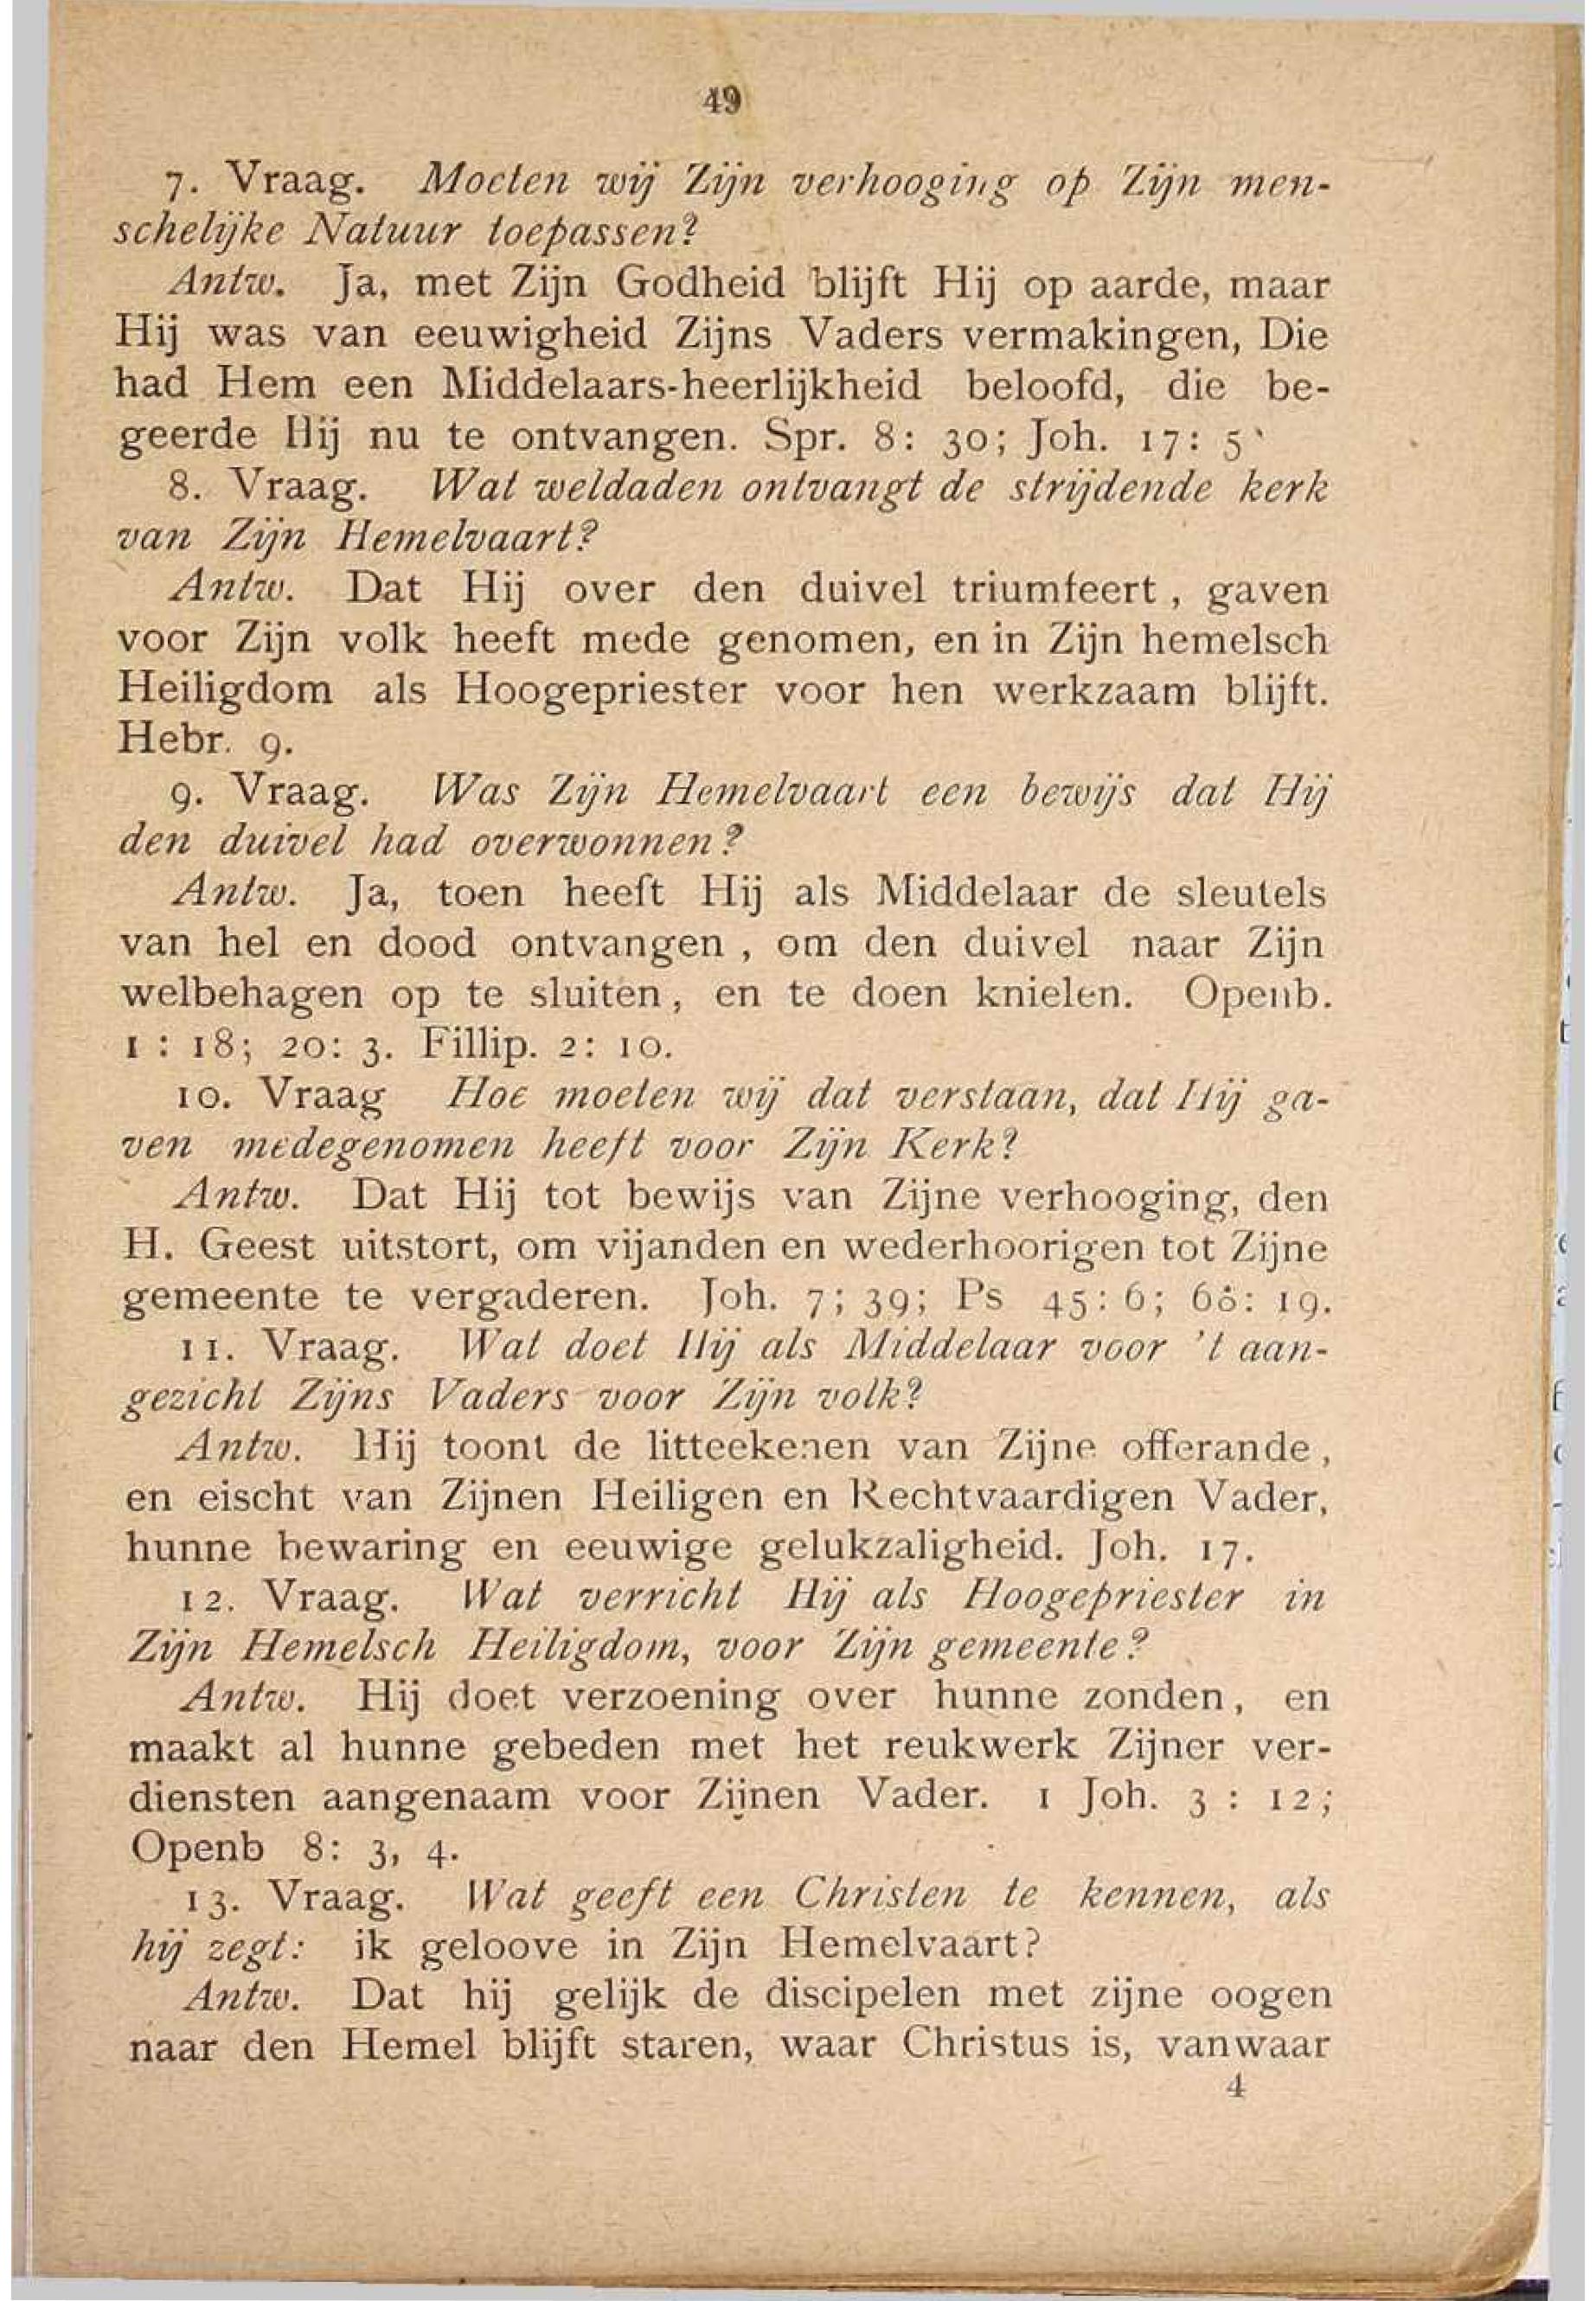 49
7. Vraag. Moeten wij Zijn verhooging op Zijn men-
schelijke Natuur toepassen?
Antw. Ja, met Zijn Godheid blijft Hij op aarde, maar
Hij was van eeuwigheid Zijns Vaders vermakingen, Die
had Hem een Middelaars-heerlijkheid beloofd, die be-
geerde Hij nu te ontvangen. Spr. 8: 30; Joh. 17: 5
8. Vraag. Wat weldaden ontvangt de strijdende kerk
van Zijn Hemelvaart?
Antw. Dat Hij over den duivel triumfeert, gaven
voor Zijn volk heeft mede genomen, en in Zijn hemelsch
Heiligdom als Hoogepriester voor hen werkzaam blijft.
Hebr. 9.
9. Vraag. Was Zijn Hemelvaart een bewijs dat Hij
den duivel had overwonnen?
Antw. Ja, toen heeft Hij als Middelaar de sleutels
van hel en dood ontvangen, om den duivel naar Zijn
welbehagen op te sluiten, en te doen knielen. Openb.
1 : 18; 20: 3. Fillip. 2: 10.
10. Vraag Hoe moeten wij dat verstaan, dat Hij ga-
ven medegenomen heeft voor Zijn Kerk?
Antw. Dat Hij tot bewijs van Zijne verhooging, den
H. Geest uitstort, om vijanden en wederhoorigen tot Zijne
gemeente te vergaderen. Joh. 7; 39; Ps 45: 6; 68: 19.
11. Vraag. Wat doet Hij als Middelaar voor 't aan-
gezicht Zijns Vaders voor Zijn volk?
Antw. Hij toont de litteekenen van Zijne offerande,
en eischt van Zijnen Heiligen en Rechtvaardigen Vader,
hunne bewaring en eeuwige gelukzaligheid. Joh. 17.
12. Vraag. Wat verricht Hij als Hoogepriester in
Zijn Hemelsch Heiligdom, voor Zijn gemeente?
Antw. Hij doet verzoening over hunne zonden, en
maakt al hunne gebeden met het reukwerk Zijner ver-
diensten aangenaam voor Zijnen Vader. 1 Joh. 3 : 12;
Openb 8: 3, 4.
13. Vraag. Wat geeft een Christen te kennen, als
hij zegt: ik geloove in Zijn Hemelvaart?
Antw. Dat hij gelijk de discipelen met zijne oogen
naar den Hemel blijft staren, waar Christus is, vanwaar
4